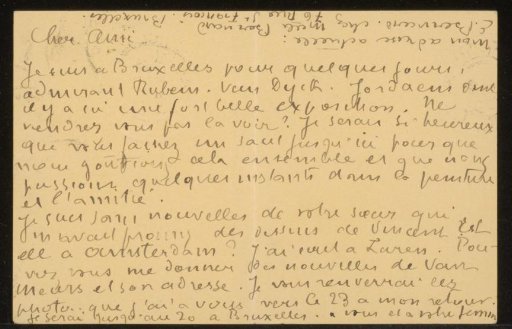 mon adresse actuelle:
E Bernard. chez Melle Bernard
76 Rue St François Bruxelles.
Cher Ami
Je suis a Bruxelles pour quelques jours,
admirant Rubens. Van Dyck. Jordaens dont
il y a ici une fort belle exposition. Ne
viendrez vous pas la voir? Je serais si heureux
que vous fassiez un saut jusqu'ici pour que
nous goûtions cela ensemble et que nous
passions quelques instants dans la peinture
et l'amitié.
Je suis sans nouvelles de votre sœur qui
m'avait promis des dessins de Vincent Est
elle a Amsterdam? J'ai écrit a Laren. Pou-
vez vous me donner des nouvelles de Van
Meurs et son adresse. Je vous renverrai les
photo. que j'ai a vous vers le 23 a mon retour.
Je serai jusqu'au 20 a Bruxelles. a vous et a votre femme